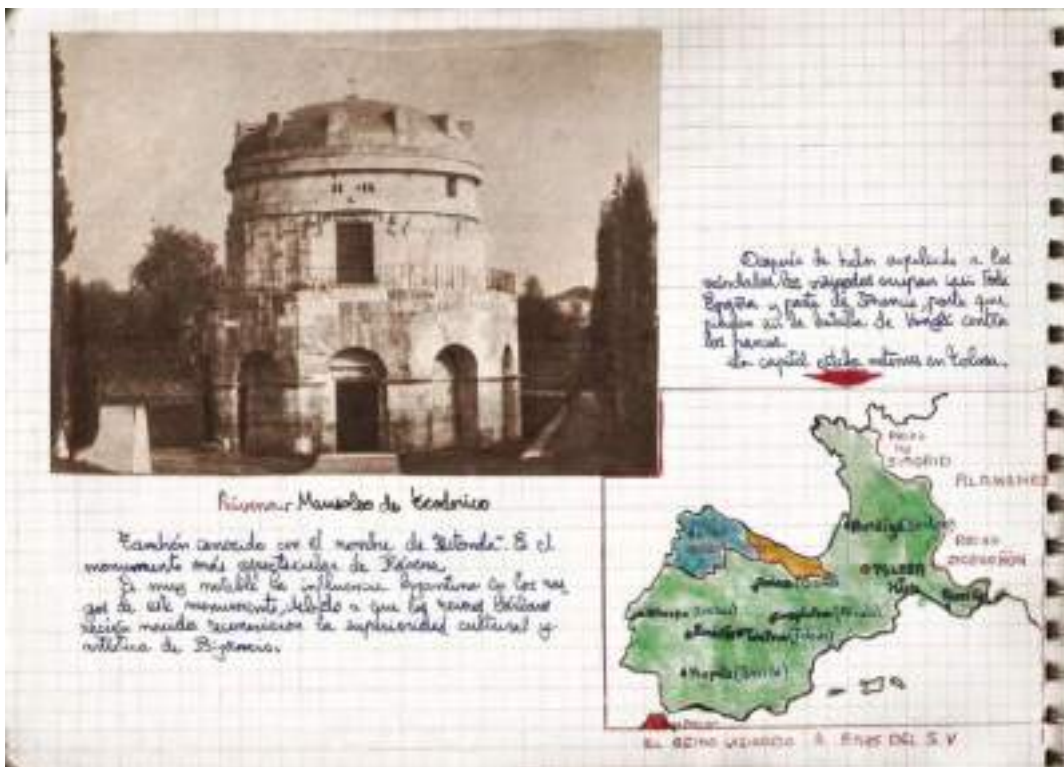 Rávena.- Mausoleo de Teodorico
También conocido con el nombre de "Rotonda". Es el
monumento más espectacular de Rávena.
Es muy notable la influencia bizantina en los ras
gos de este monumento, debido a que los reinos bárbaros
recién nacidos reconocieron la superioridad cultural y
artística de Bizancio.
Después de haber expulsado a los
vándalos, los visigodos ocupan casi toda
España y parte de Francia, parte que
en la batalla de Vouglé contra
los francos.
La capital estaba entonces en Tolosa.
REINO
DE
SIAGRIO
ALAMANES
REINO
TOLOSA
(Toledo)
(Sevilla)
EL REINO VISIGODO A FINES DEL S. V